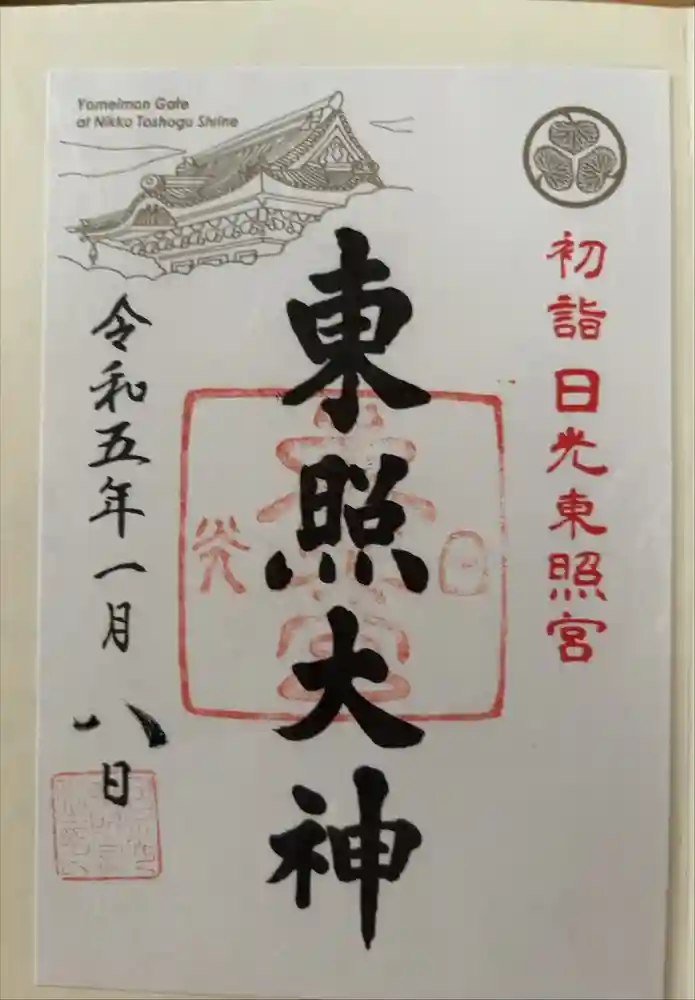 Yomeimon Gate
at Nikko Toshogu Shrine
初詣 日光東照宮
東照大神
令和五年一月八日